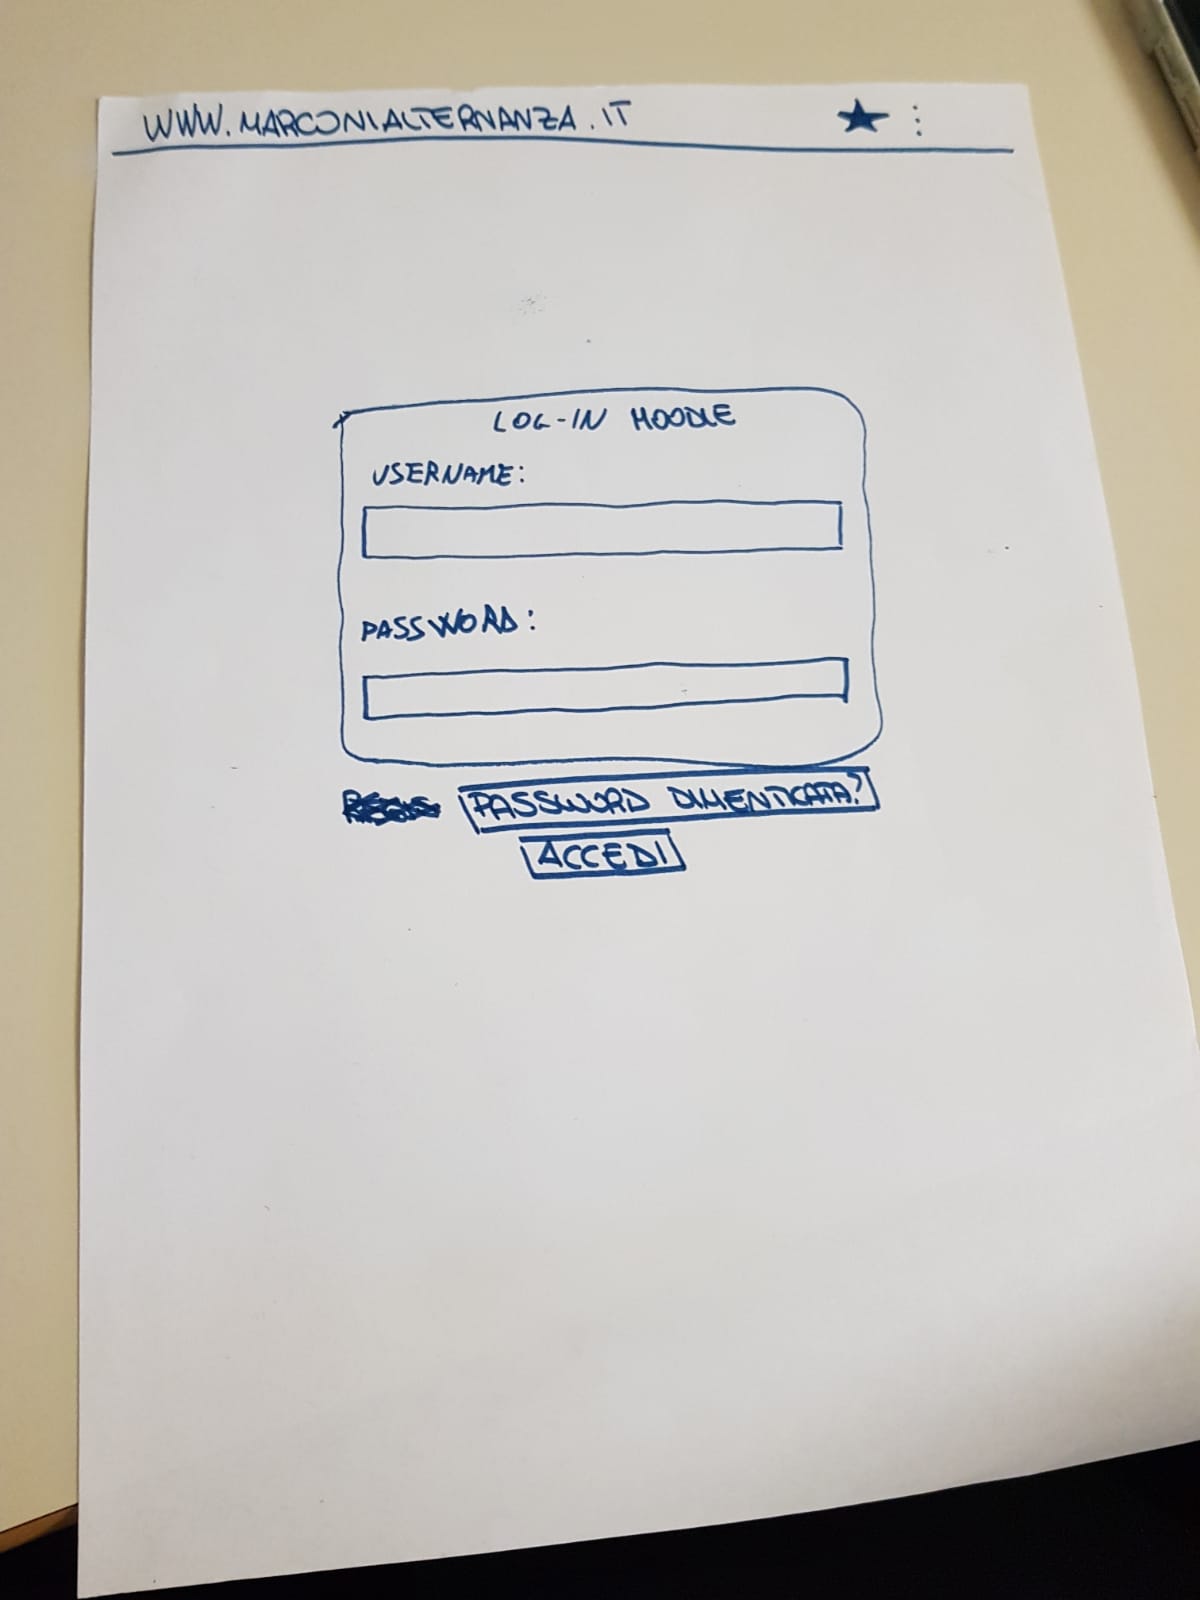 WWW.MARCONIALTERNANZA.IT
LOG-IN MOODLE
USERNAME:
PASSWORD:
PASSWORD DIMENTICATA?
ACCEDI